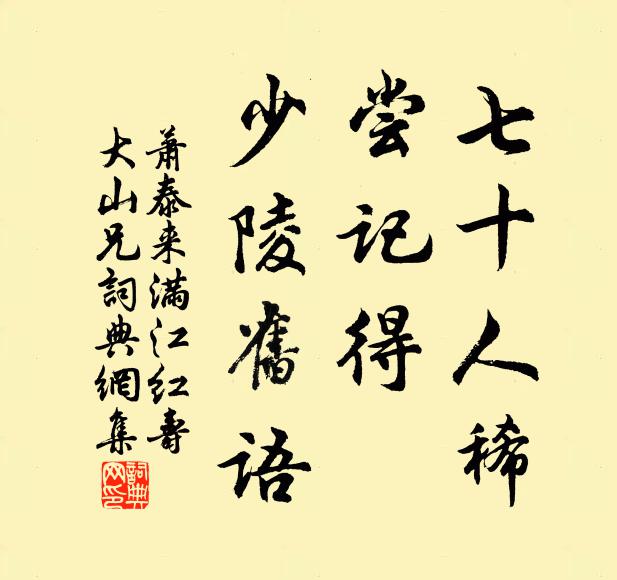 七十人稀
尝记得
少陵舊语
萧泰来满江红寿
大山兄詞典網集
詞典网印